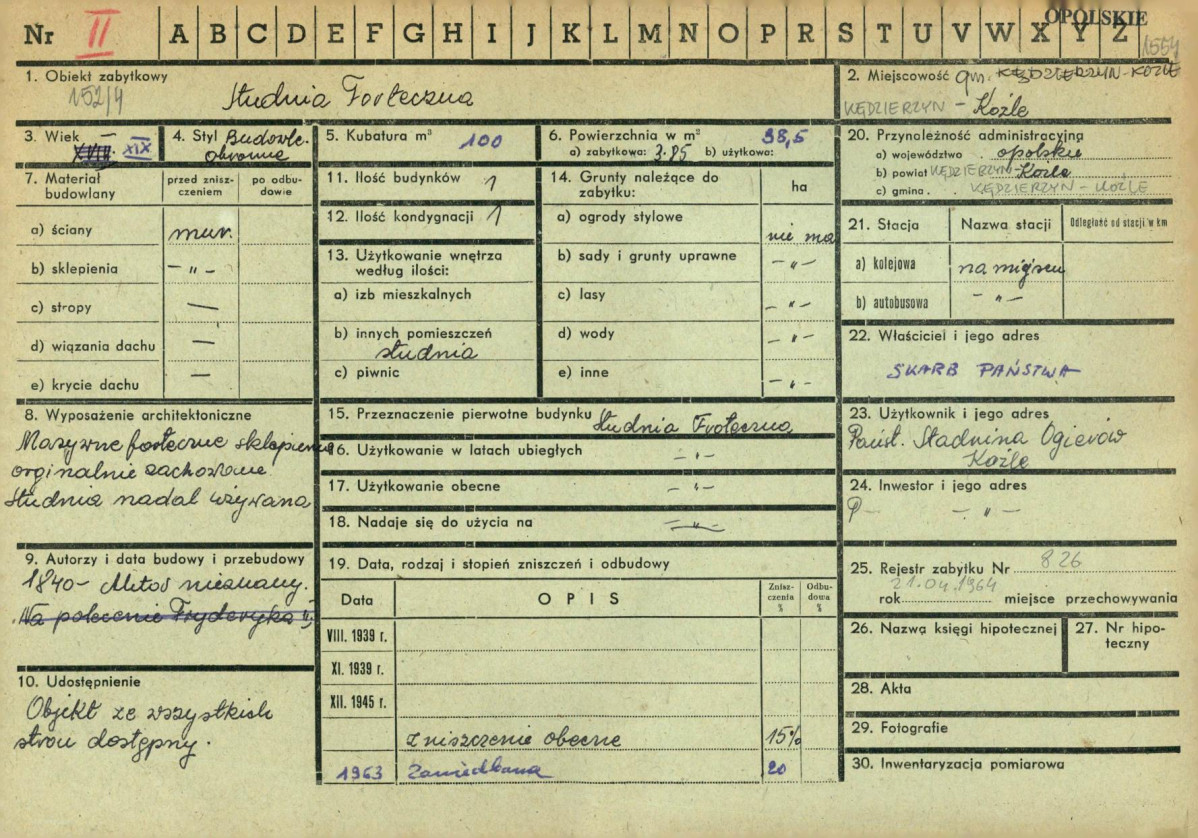 OPOLSKIE
Nr II A B C D E F G H I J K L M N O P R S T U V W X Y Z
1554
1. Obiekt zabytkowy
152/4
Studnia Forteczna
2. Miejscowość gm. KĘDZIERZYN-KOŹLE
KĘDZIERZYN - Koźle
3. Wiek —
XVIII. XIX
4. Styl Budowle
obronne
5. Kubatura m³ 100
6. Powierzchnia w m² 38,5
a) zabytkowa: 3.85 b) użytkowa:
7. Materiał budowlany
przed zniszczeniem
po odbudowie
a) ściany mur.
b) sklepienia — " —
c) stropy —
d) wiązania dachu —
e) krycie dachu —
8. Wyposażenie architektoniczne
Masywne forteczne sklepienie
orginalnie zachowane
studnia nadal używana
9. Autorzy i data budowy i przebudowy
1840 - Autor nieznany.
Na polecenie Fryderyka II
10. Udostępnienie
Objekt ze wszystkich
stron dostępny.
11. Ilość budynków 1
12. Ilość kondygnacji 1
13. Użytkowanie wnętrza
według ilości:
a) izb mieszkalnych
b) innych pomieszczeń
studnia
c) piwnic
14. Grunty należące do
zabytku:
ha
a) ogrody stylowe nie ma
b) sady i grunty uprawne — " —
c) lasy — " —
d) wody — " —
e) inne — " —
15. Przeznaczenie pierwotne budynku studnia Froteczna
16. Użytkowanie w latach ubiegłych — " —
17. Użytkowanie obecne — " —
18. Nadaje się do użycia na — " —
19. Data, rodzaj i stopień zniszczeń i odbudowy
Data OPIS Zniszczenia % Odbudowa %
VIII. 1939 r.
XI. 1939 r.
XII. 1945 r.
zniszczenie obecne 15%
1963 Zaniedbana 20
20. Przynależność administracyjna
a) województwo . opolskie
b) powiat KĘDZIERZYN-Koźle
c) gmina . . KĘDZIERZYN - KOŹLE
21. Stacja Nazwa stacji Odległość od stacji w km
a) kolejowa na miejscu
b) autobusowa — " —
22. Właściciel i jego adres
SKARB PAŃSTWA
23. Użytkownik i jego adres
Państ. Stadnina Ogierów
Koźle
24. Inwestor i jego adres
P — — " —
25. Rejestr zabytku Nr 826
21.04.1964
rok miejsce przechowywania
26. Nazwa księgi hipotecznej
27. Nr hipoteczny
28. Akta
29. Fotografie
30. Inwentaryzacja pomiarowa